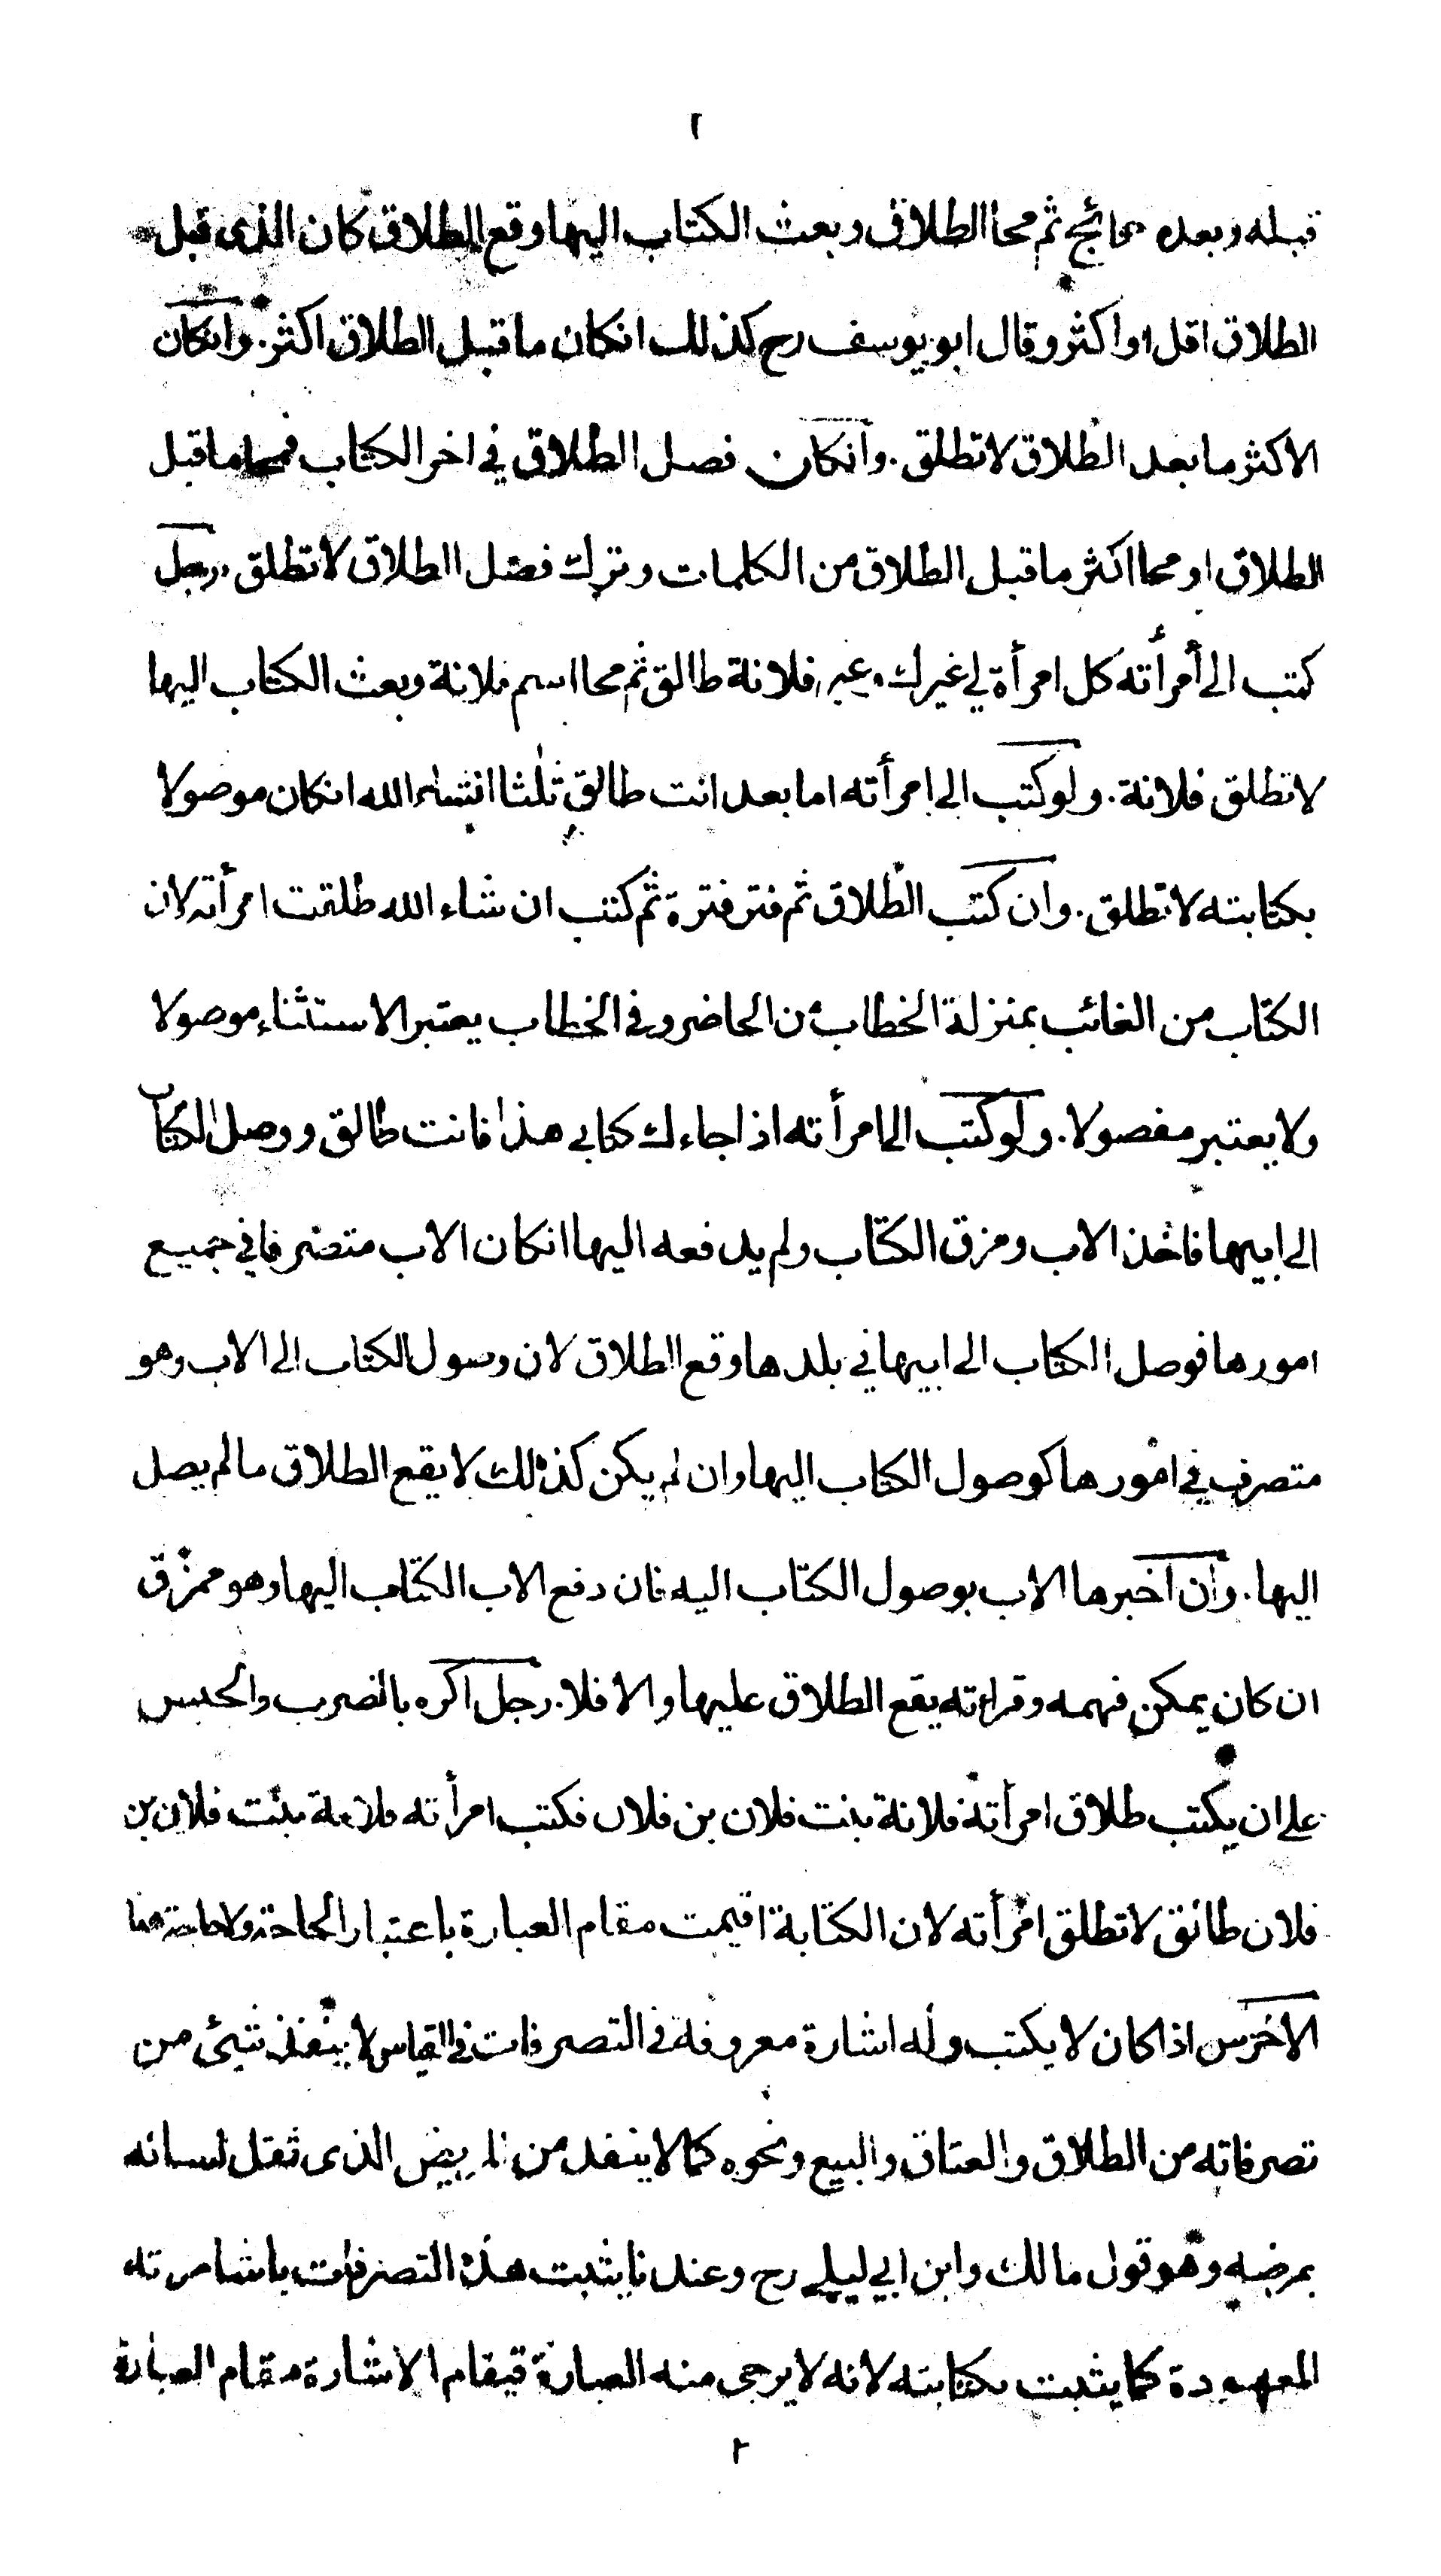 ٢
قبله وبعده حوائج ثم محا الطلاق وبعث الكتاب اليها وقع الطلاق كان الذى قبل
الطلاق اقل او اكثر وقال ابو يوسف رح كذلك انكان ما قبل الطلاق اكثر. وانكان
الاكثر ما بعد الطلاق لا تطلق. وانكان فصل الطلاق في اخر الكتاب فمحا ما قبل
الطلاق او محا اكثر ما قبل الطلاق من الكلمات وترك فصل الطلاق لا تطلق. رجل
كتب الى أمرأته كل امرأة لي غيرك وغير فلانة طالق ثم محا اسم فلانة وبعث الكتاب اليها
لا تطلق فلانة. ولو كتب الى امرأته اما بعد انت طالق ثلثا انشاء الله انكان موصولا
بكتابته لا تطلق. وان كتب الطلاق ثم فتر فترة ثم كتب ان شاء الله طلقت امرأته لان
الكتاب من الغائب بمنزلة الخطاب من الحاضر وفي الخطاب يعتبر الاستثناء موصولا
ولا يعتبر مفصولا. ولو كتب الى امرأته اذا جاءك كتابي هذا فانت طالق ووصل الكتاب
الى ابيها فاخذ الاب ومزق الكتاب ولم يدفعه اليها انكان الاب متصرفا في جميع
امورها فوصل الكتاب الى ابيها في بلدها وقع الطلاق لان وصول الكتاب الى الاب وهو
متصرف في امورها كوصول الكتاب اليها وان لم يكن كذلك لا يقع الطلاق ما لم يصل
اليها. وان اخبرها الاب بوصول الكتاب اليه فان دفع الاب الكتاب اليها وهو ممزق
ان كان يمكن فهمه وقراءته يقع الطلاق عليها والا فلا. رجل اكره بالضرب والحبس
على ان يكتب طلاق امرأته فلانة بنت فلان بن فلان فكتب امرأته فلانة بنت فلان بن
فلان طالق لا تطلق امرأته لان الكتابة اقيمت مقام العبارة باعتبار الحاجة ولا حاجة هنا
الاخرس اذا كان لا يكتب وله اشارة معروفة في التصرفات في القياس لا ينفذ شيئ من
تصرفاته من الطلاق والعتاق والبيع ونحوه كما لا ينفذ من المريض الذى ثقل لسانه
بمرضه وهو قول مالك وابن ابي ليلى رح وعندنا يثبت هذه التصرفات باشارته
المعهودة كما يثبت بكتابته لانه لا يرجى منه العبارة فيقام الاشارة مقام العبارة
٢